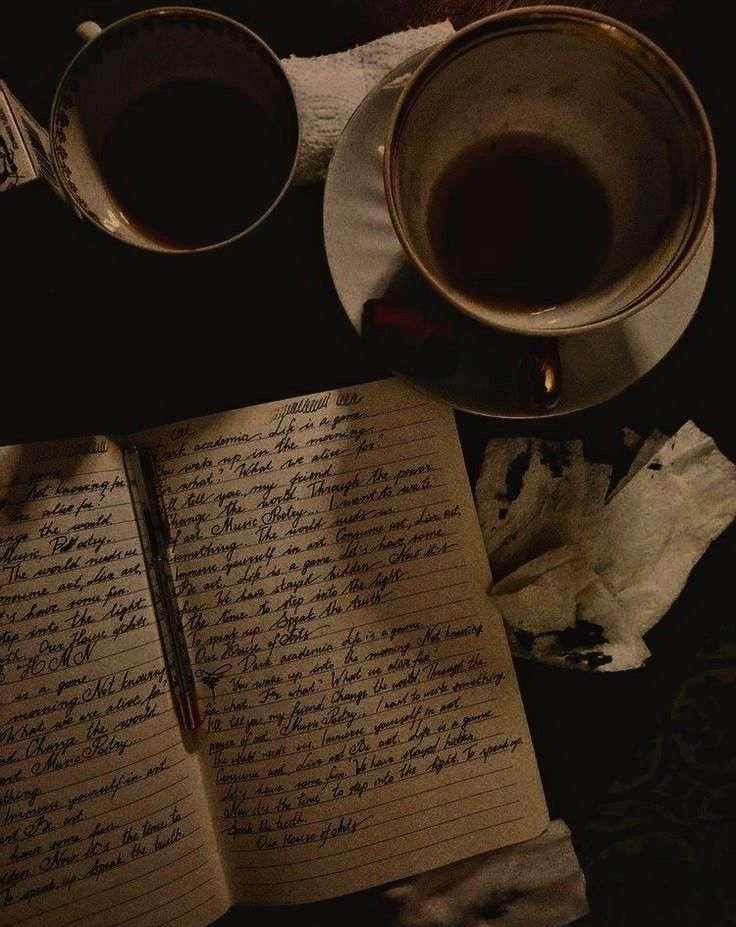 Not knowing for
are alive for?
nge the world.
Music, Poetry..
The world needs us
onsume art, Live art,
's have some fun.
tep into the light.
th. Our House of Arts
HMN
is a game
morning. Not knowing
What we are alive for.
nd. Change the world
art Music Poetry..
thing
Immerse yourself in art
art Be art.
have some fun.
dden. Now it's the time to
To speak up. Speak the truth
Dark academia. Life is a game.
You wake up in the morning.
For what? What we alive for?
I'll tell you, my friend.
Change the world. Through the power
of art. Music Poetry... I want to write
something. The world needs us.
Immerse yourself in art Consume art, Live art,
Be art. Life is a game. Let's have some
fun. We have stayed hidden Now it's
the time to step into the light
To speak up. Speak the truth
Our House of Arts
Dark academia Life is a game.
You wake up into the morning Not knowing
for what. For what. What we alive for.
I'll tell you, my friend. Change the world. Through the
power of art. Music Poetry... I want to write something
The world needs us, Immerse yourself in art
Consume art, Live art Be art. Life is a game
Let's have some fun. We have stayed hidden.
Now it's the time to step into the light. To speak up.
Speak the truth.
Our House of Arts